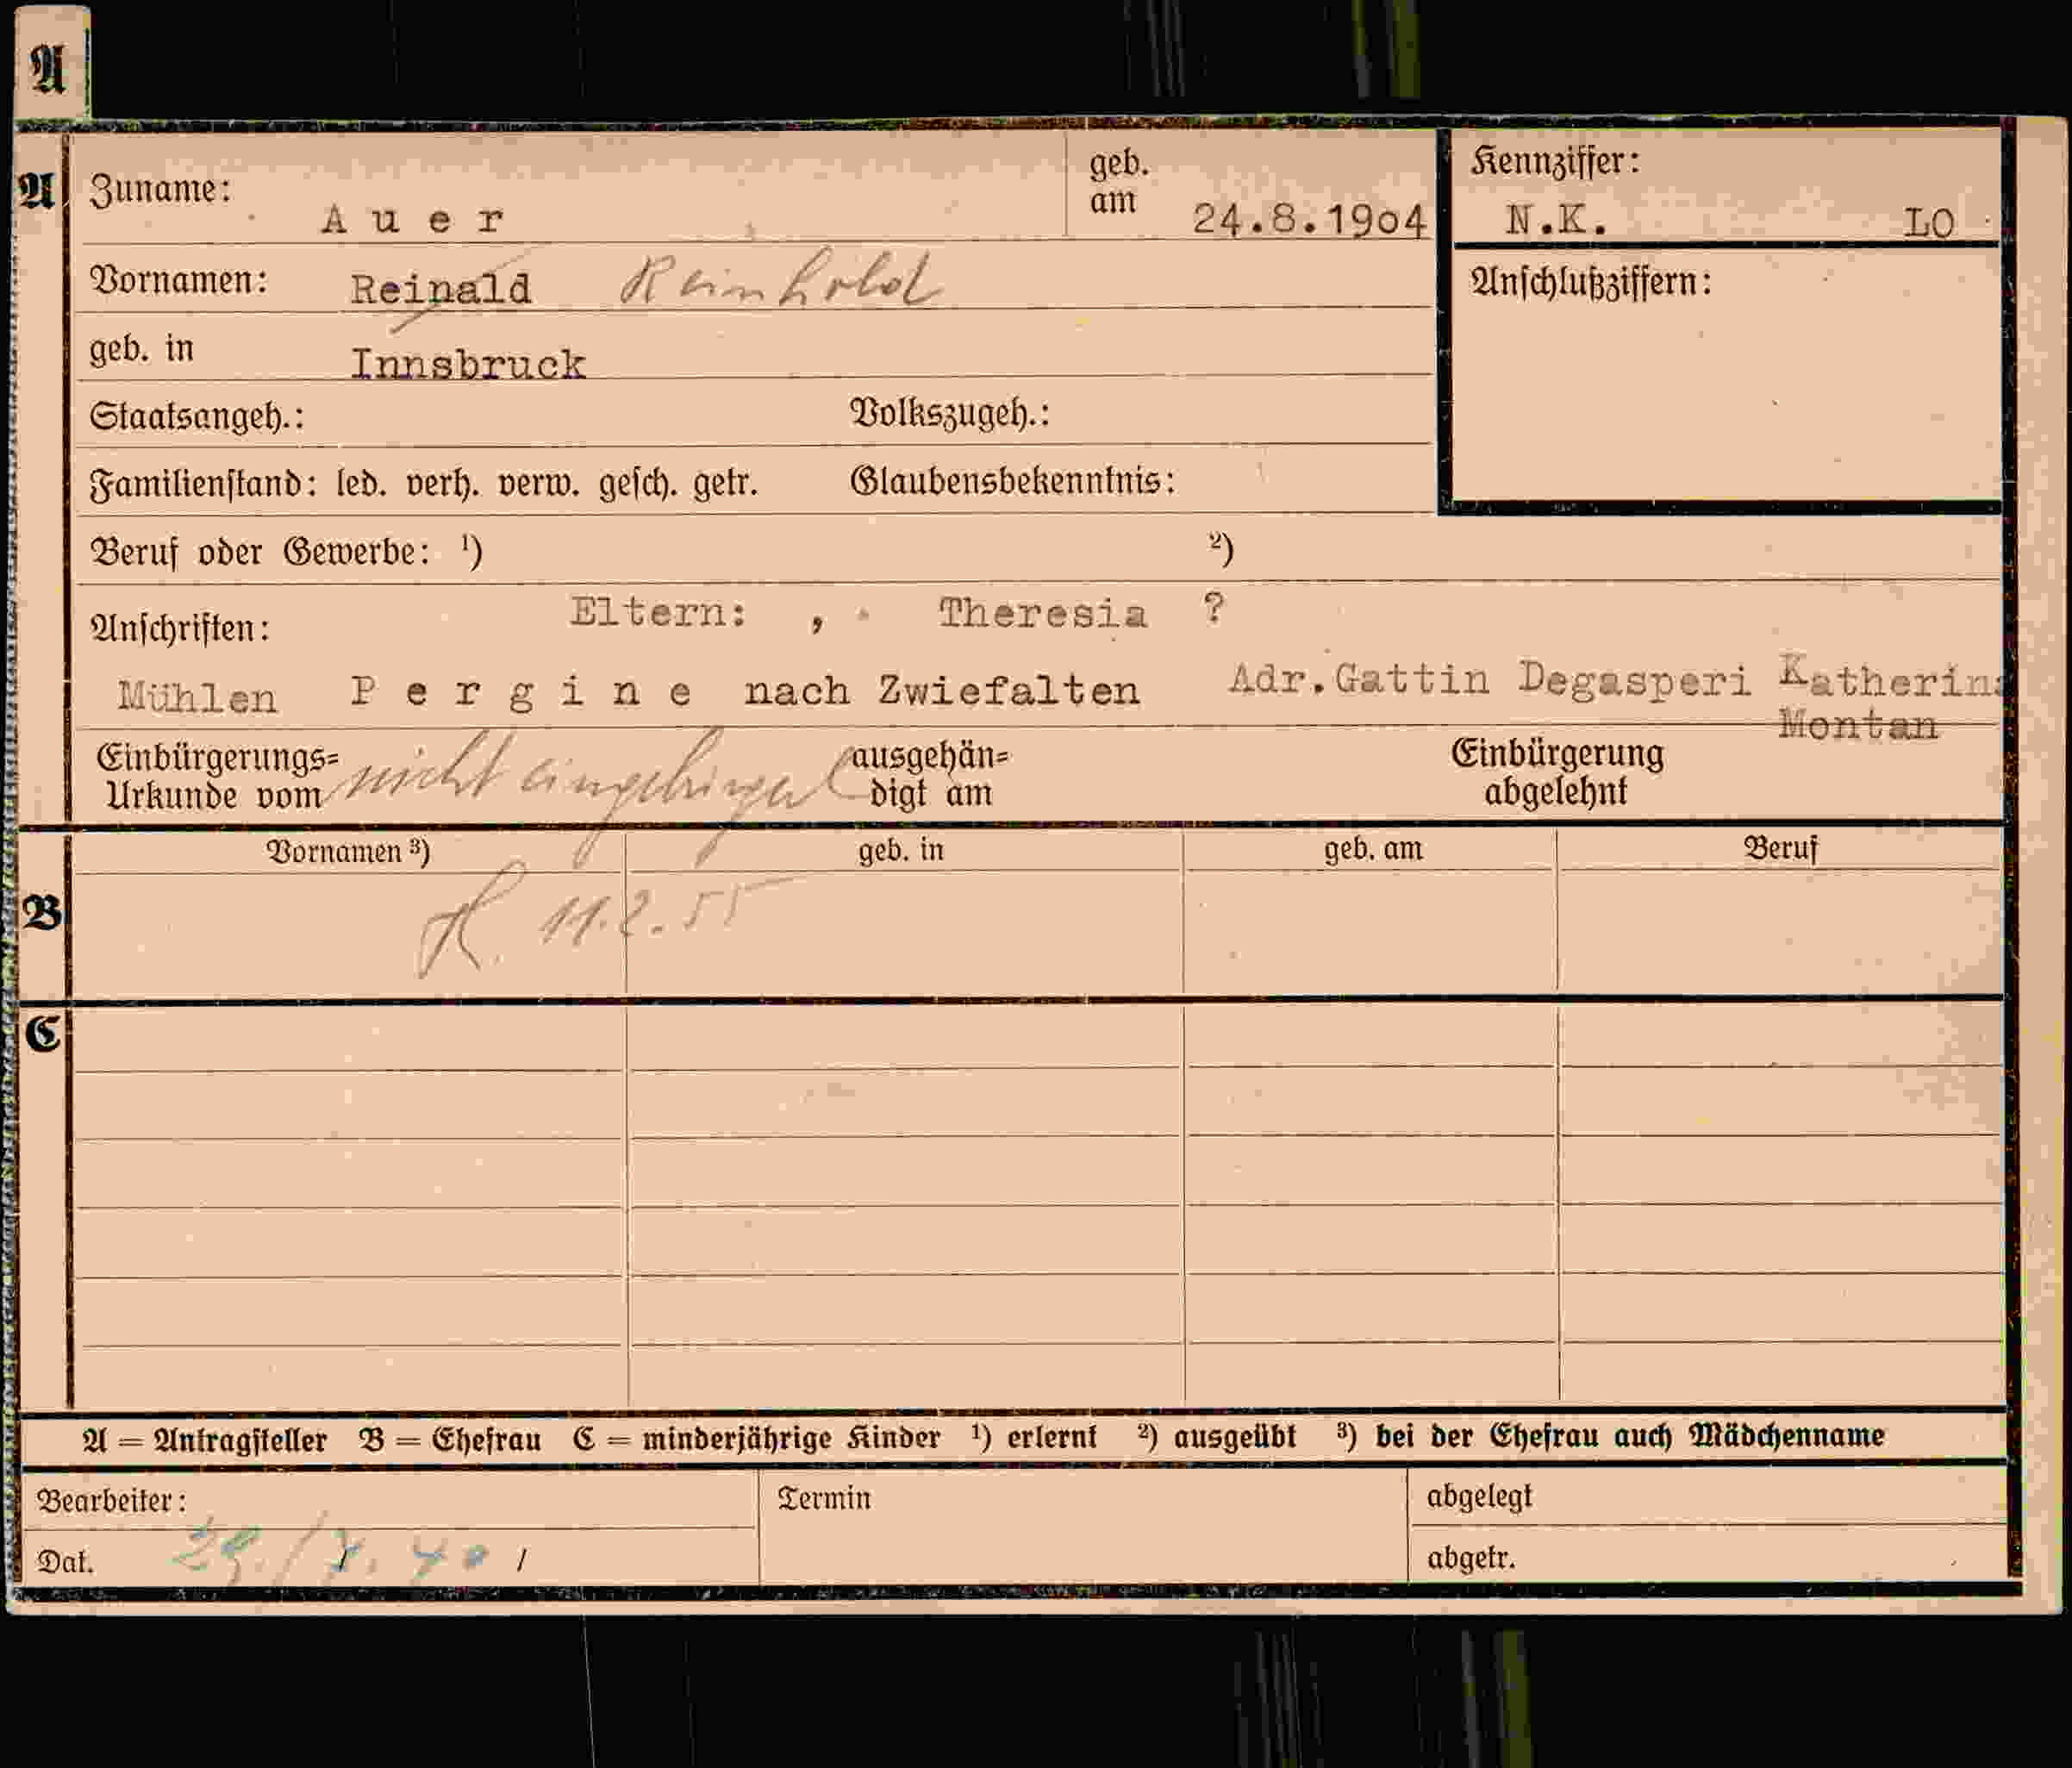 A
A Zuname: A u e r geb. am 24.8.19o4 Kennziffer: N.K. LO
Vornamen: Reinald Reinhold Anschlußziffern:
geb. in Innsbruck
Staatsangeh.: Volkszugeh.:
Familienstand: led. verh. verw. gesch. getr. Glaubensbekenntnis:
Beruf oder Gewerbe: ¹) ²)
Anschriften: Eltern: , Theresia ?
Mühlen P e r g i n e nach Zwiefalten Adr.Gattin Degasperi Katherina
Montan
Einbürgerungs= nicht eingebürgert ausgehän= Einbürgerung
Urkunde vom digt am abgelehnt
Vornamen ³) geb. in geb. am Beruf
B 11.2.55
C
A = Antragsteller B = Ehefrau C = minderjährige Kinder ¹) erlernt ²) ausgeübt ³) bei der Ehefrau auch Mädchenname
Bearbeiter: Termin abgelegt
Dat. 29./7. 40 / abgetr.